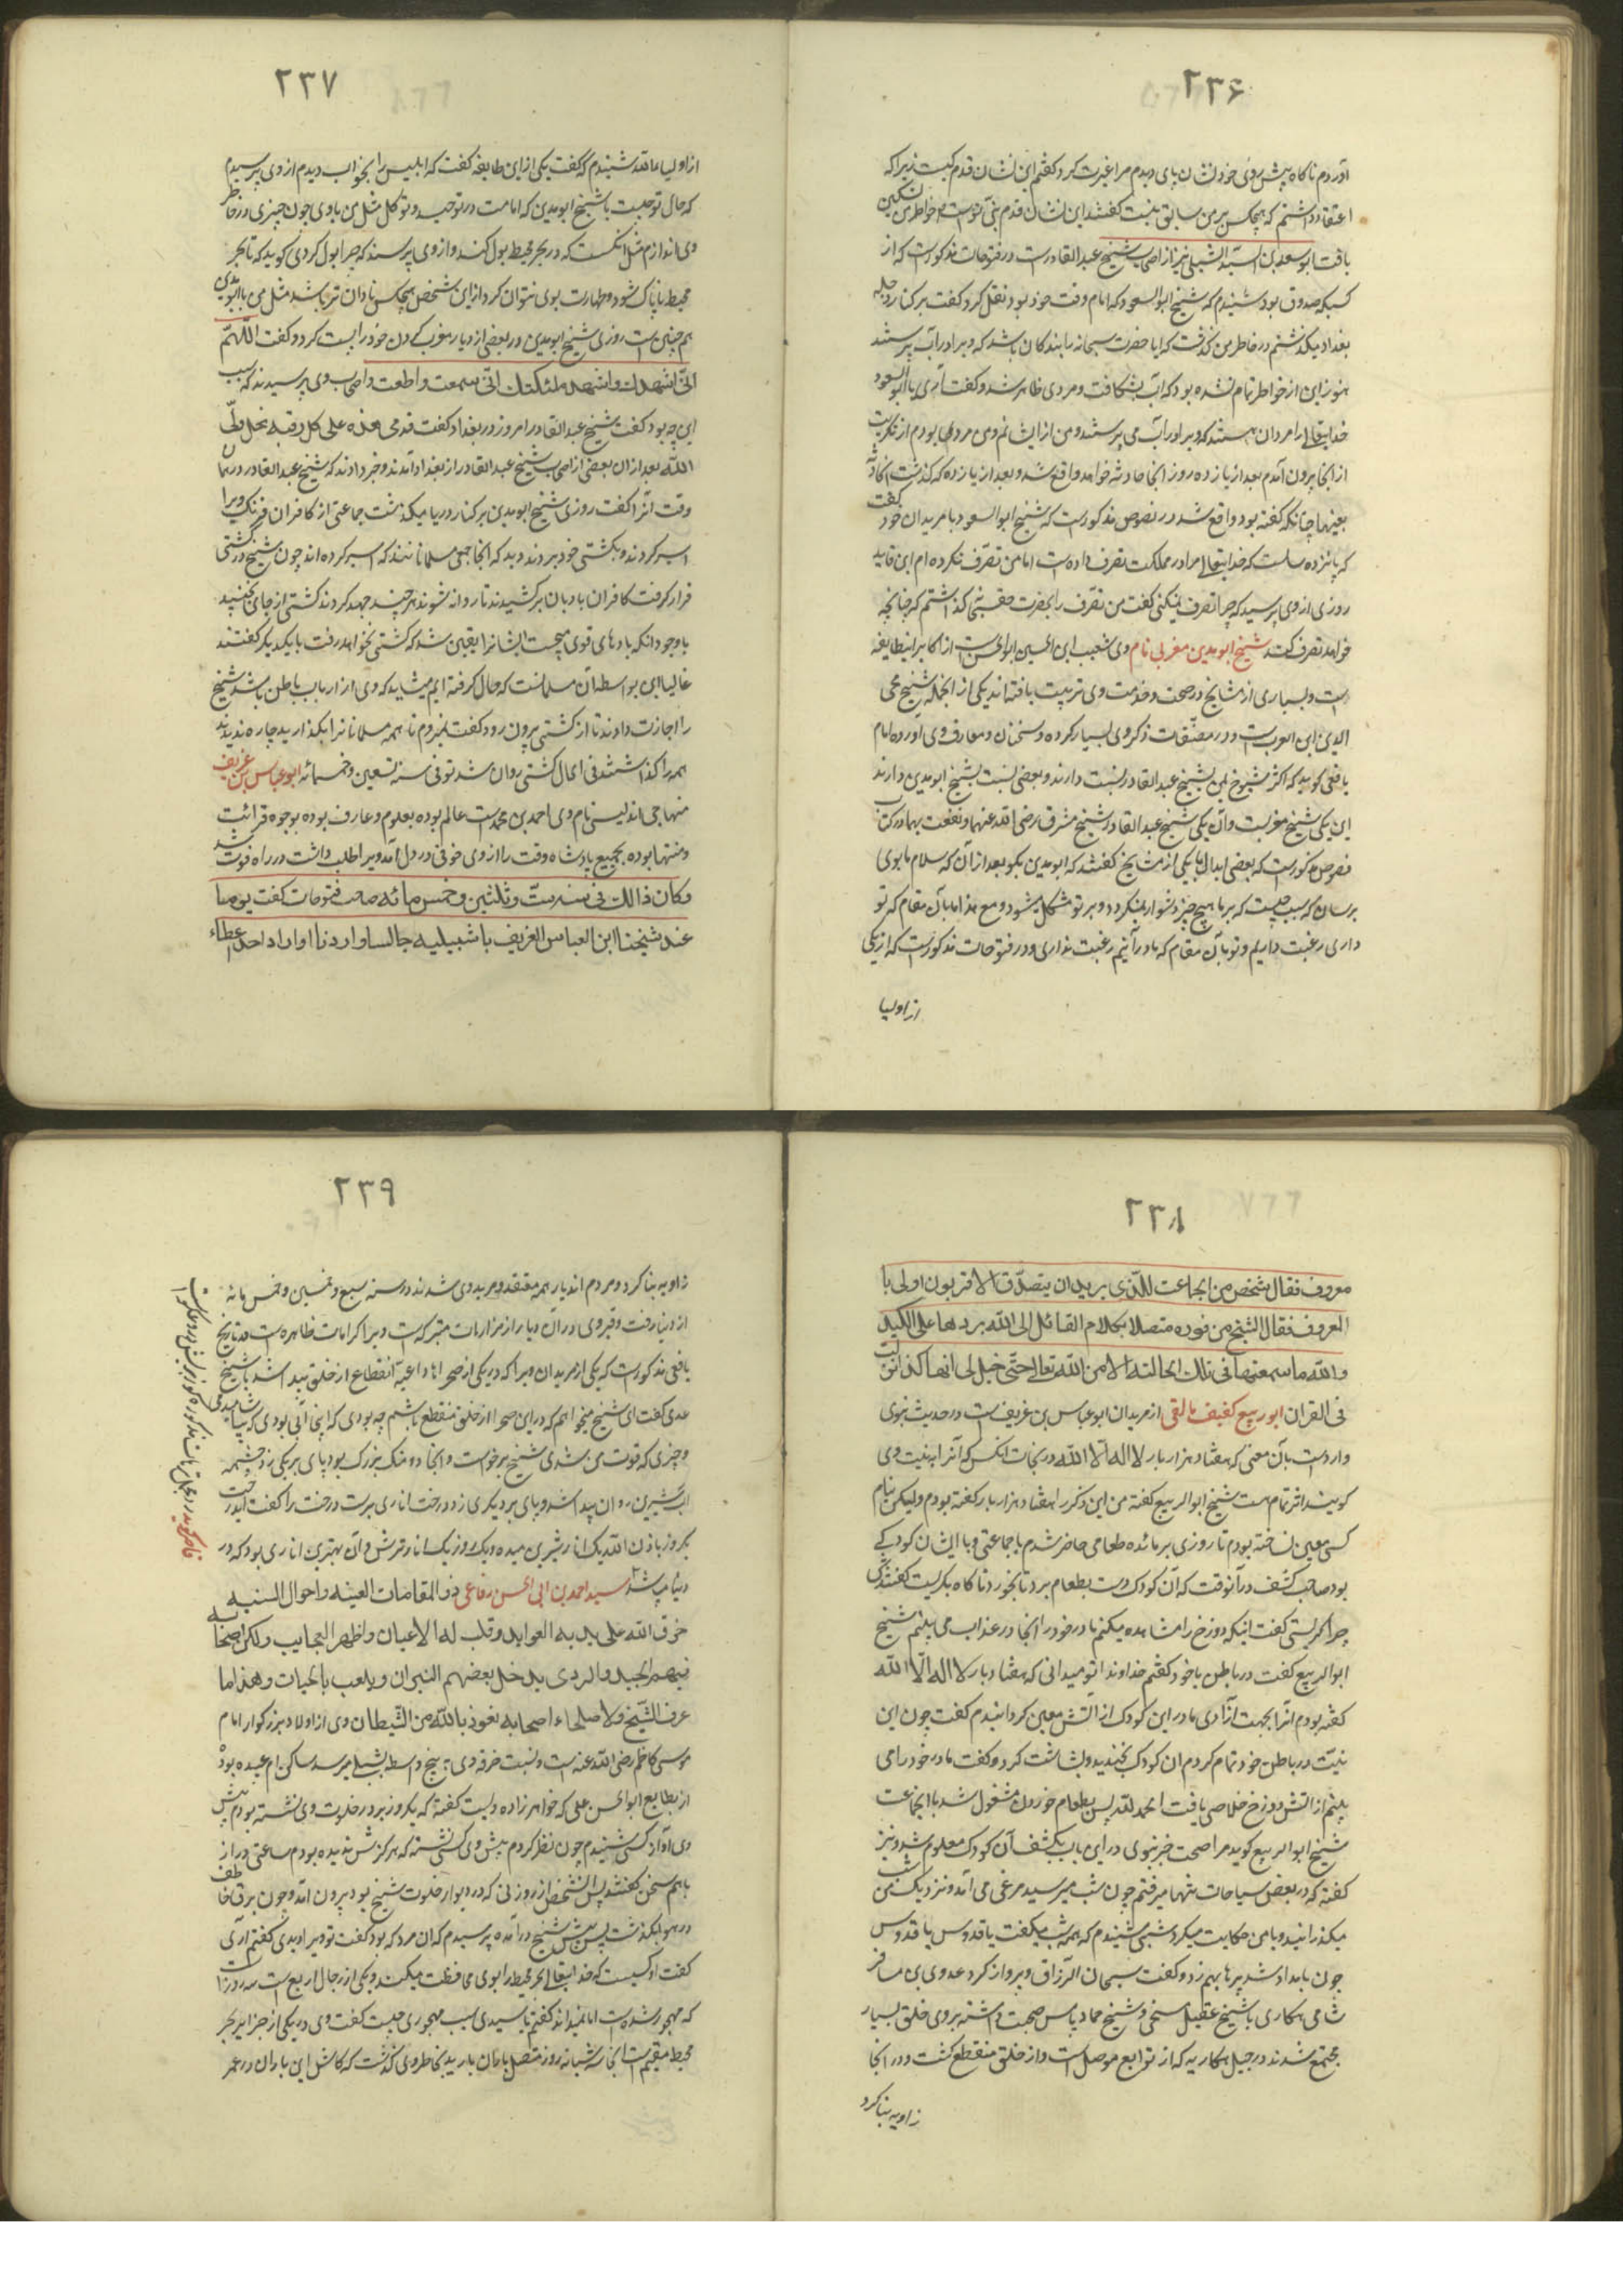 ۲۳۶
آوردم ناگاه پیش روی خود نشان پای دیدم مرا غیرت کرد گفتم این نشان قدم کیست زیرا که
اعتقاد داشتم که هیچکس بر من سابق نیست گفتند این نشان قدم نبی تو است خاطر من تسکین
یافت ابو سعد بن الشبلی نیز از اصحاب شیخ عبدالقادر است در فتوحات مذکور است که از
کسیکه صدوق بود شنیدم که شیخ ابوالسعود که امام وقت خود بود نقل کرد گفت بر کنار دجله
بغداد میگذشتم در خاطر من گذشت که ایا حضرت سبحانه را بندگان باشد که ویرا در آب پرستند
هنوز این از خواطر تمام نشده بود که آب بشکافت و مردی ظاهر شد و گفت آری یا ابوالسعود
خدایتعالی را مردان هستند که ویرا در آب می پرستند و من از ایشانم و من مردی بودم از تکریت
از انجا بیرون آمدم بعد از یازده روز انجا حادثه خواهد واقع شد و بعد از یازده که گذشت آن حادثه
بعینها چنانکه گفته بود واقع شد در نصوص مذکور است که شیخ ابوالسعود با مریدان خود گفت
که پانزده سالست که خدایتعالی مرا در مملکت تصرف داده است اما من تصرف نکرده ام ابن قاید
روزی از وی پرسید که چرا تصرف نمیکنی گفت من تصرف را بحضرت حقسبحانه گذاشتم که چنانچه
خواهد تصرف کند شیخ ابو مدین مغربی نام وی شعیب ابن الحسین ابوالحسن است از اکابر اینطایفه
است و بسیاری از مشایخ در صحبت و خدمت وی تربیت یافته اند یکی از انجمله شیخ محی
الدین ابن العرب است و در مصنفات ذکر وی بسیار کرده و سخنان و معارف وی آورده امام
یافعی گوید که اکثر شیوخ یمن بشیخ عبدالقادر نسبت دارند و بعضی نسبت بشیخ ابو مدین دارند
این یکی شیخ مغربست و آن یکی شیخ عبدالقادر شیخ مشرق رضی الله عنهما و نفعت بهما در کتاب
فصوص مذکور است که بعضی ابدال با یکی از مشایخ گفتند که ابو مدین بگو بعد از آن که سلام ما بوی
برسان که سبب چیست که بر ما هیچ چیز دشوار نمیگردد و بر تو مشکل میشود و مع هذا ما بآن مقام که تو
داری رغبت داریم و تو بآن مقام که ما در آنیم رغبت نداری و در فتوحات مذکور است که از یکی
از اولیا
۲۳۷
از اولیاءالله شنیدم که گفت یکی از این طایفه گفت که ابلیس را بخواب دیدم از وی پرسیدم
که حال تو چیست با شیخ ابو مدین که امامست در توحید و توکل گفت مثل من با وی چون چیزی در خاطر
وی اندازم مثل آنکست که در بحر محیط بول کند و از وی پرسند که چرا بول کردی گوید که تا بحر
محیط ناپاک شود و طهارت بوی نتوان کرد از این شخص هیچکس نادان تر باشد مثل من با ابو مدین
هم چنین است روزی شیخ ابو مدین در بعضی از دیار مغرب گردن خود را پست کرد و گفت اللهم
انی اشهدک و اشهد ملئکتک انی سمعت و اطعت و اصحاب وی پرسیدند که سبب
این چه بود گفت شیخ عبدالقادر امروز در بغداد گفت قدمی هذه علی کل رقبة کل ولی
الله بعد از ان بعضی از اصحاب شیخ عبدالقادر از بغداد آمدند و خبر دادند که شیخ عبدالقادر در همان
وقت آنرا گفت روزی شیخ ابو مدین بر کنار دریا میگذشت جماعتی از کافران فرنگ ویرا
اسیر کردند و بکشتی خود بردند دید که انجا جمعی مسلمانانند که اسیر کرده اند چون شیخ در کشتی
قرار گرفت کافران بادبان بر کشیدند تا روانه شوند هر چند جهد کردند کشتی از جای نجنبید
با وجود آنکه بادهای قوی میجست ایشانرا یقین شد که کشتی نخواهد رفت با یکدیگر گفتند
غالبا این بواسطه آن مسلمانست که حال گرفته ایم میشاید که وی از ارباب باطن باشد شیخ
را اجازت دادند تا از کشتی بیرون رود گفت نمیروم تا همه مسلمانانرا بگذارید چاره ندیدند
همه را گذاشتند فی الحال کشتی روان شد توفی سنة تسعین و خمسمائه ابو عباس بن غریف
منهاجی اندلیسی نام وی احمد بن محمد است عالم بوده بعلوم و عارف بوده بوجوه قرائت
و منتها بوده بجمیع پادشاه وقت را از وی خوفی در دل آمد ویرا طلب داشت در راه فوت شد
وکان ذالک فی سنة ست و ثلثین و خمس مائه صاحب فتوحات گفت یوما
عند شیخنا ابن العباس العریف باشبیلیه جالسا و اردنا او اراد احد اعطاء
۲۳۸
معروف فقال شخص من الجماعت للذی یرید ان یتصدق الاقربون اولی با
المعروف فقال الشیخ من فوره متصلا بکلام القائل الی الله یردها علی الکبد
والله ما سمعتها فی تلک الحالته الا من الله تعالی حتی خیل لی انها کذا نزلت
فی القران ابو ربیع کفیف مالقی از مریدان ابو عباس بن عریف است در حدیث نبوی
وارد است بآن معنی که هفتاد هزار بار لا اله الا الله در نجات آنکس که آنرا به نیت وی
گویند اثر تمام هست شیخ ابوالربیع گفته من این ذکر را هفتاد هزار بار گفته بودم ولیکن بنام
کسی معین نساخته بودم تا روزی بر مائده طعامی حاضر شدم با جماعتی و با ایشان کودکی
بود صاحب کشف در آنوقت که آن کودک دست بطعام برد تا بخورد ناگاه بگریست گفتندش
چرا گریستی گفت اینکه دوزخ را مشاهده میکنم مادر خود در انجا در عذاب می بینم شیخ
ابوالربیع گفت در باطن با خود گفتم خداوندا تو میدانی که هفتاد بار لا اله الا الله
گفته بودم آنرا بجهت آزادی مادر این کودک از آتش معین گردانیدم گفت چون این
نیت در باطن خود تمام کردم ان کودک بخندید و بشاشت کرد و گفت مادر خود را می
بینم از اتش دوزخ خلاصی یافت الحمدلله پس بطعام خوردن مشغول شد با انجماعت
شیخ ابوالربیع گوید مرا صحت خبر نبوی در این باب بکشف آن کودک معلوم شد و نیز
گفته که در بعض سیاحات تنها میرفتم چون شب میرسید مرغی می آمد و نزدیک من شب
میگذرانید و با من حکایت میکرد شبی شنیدم که همه شب میگفت یا قدوس یا قدوس
چون بامداد شد پرها بهم زد و گفت سبحان الرزاق و پرواز کرد عدوی بن مسافر
شامی هکاری با شیخ عقیل منبجی و شیخ حماد پاس صحبت داشته بروی خلق بسیار
مجتمع شدند در جبل هکاریه که از توابع موصل است و از خلق منقطع گشت و در انجا
زاویه بنا کرد
۲۳۹
زاویه بنا کرد و مردم اندیار همه معتقد و مرید وی شدند در سنه سبع و خمسین و خمس مائه
از دنیا رفت و قبر وی در آن دیار از مزارات متبرکه است ویرا کرامات ظاهره است در تاریخ
یافعی مذکور است که یکی از مریدان ویرا که در یکی از صحراها داعیه انقطاع از خلق پیدا شد با شیخ
عدی گفت ای شیخ میخواهم که در این صحرا از خلق منقطع باشم چه بودی که اینجا آبی بودی که بیاشامیدمی
و چیزی که قوت من شدی شیخ برخواست و انجا دو سنگ بزرگ بود پای بر یکی زد چشمه
آب شیرین روان پیدا شد و پای بر دیگری زد درخت اناری برست درخت را گفت ایدرخت
یکروز باذن الله یک انار شیرین میده و یک روز یک انار ترش و آن بهترین اناری بود که در
دنیا می شد سید احمد بن ابی الحسن رفاعی ذو المقامات العینه و احوال السنیه
خرق الله علی یدیه العواید و قلب له الاعیان و اظهر العجایب ولکن اصحابه
فیهم الجید والردی یدخل بعضهم النیران و یلعب بالحیات و هذا ما
عرف الشیخ ولا صلحاء اصحابه نعوذ بالله من الشیطان وی از اولاد بزرگوار امام
موسی کاظم رضی الله عنه است و نسبت خرقه وی به پنج واسطه بشبلی میرسد ساکن ام عبیده بود
از بطایح ابوالحسن علی که خواهرزاده ویست گفته که یکروز بر در خلوت وی نشسته بودم پیش
وی آواز کسی شنیدم چون نظر کردم پیش وی کسی نشسته که هرگزش ندیده بودم ساعتی دراز
باهم سخن گفتند پس آنشخص از روزنی که در دیوار خلوت شیخ بود بیرون آمد و چون برق خاطف
در هوا بگذشت پس پیش شیخ در آمده پرسیدم که ان مرد که بود گفت تو ویرا دیدی گفتم آری
گفت او کیست که خدایتعالی بحر محیط را بوی محافظت میکند و یکی از رجال اربع است سه روز است
که مهجور شده است اما نمیداند گفتم یا سیدی سبب مهجوری چیست گفت وی در یکی از جزایر بحر
محیط مقیم است انجا سه شبانه روز متصل باران بارید بخاطر وی گذشت که کاش این باران در عمر